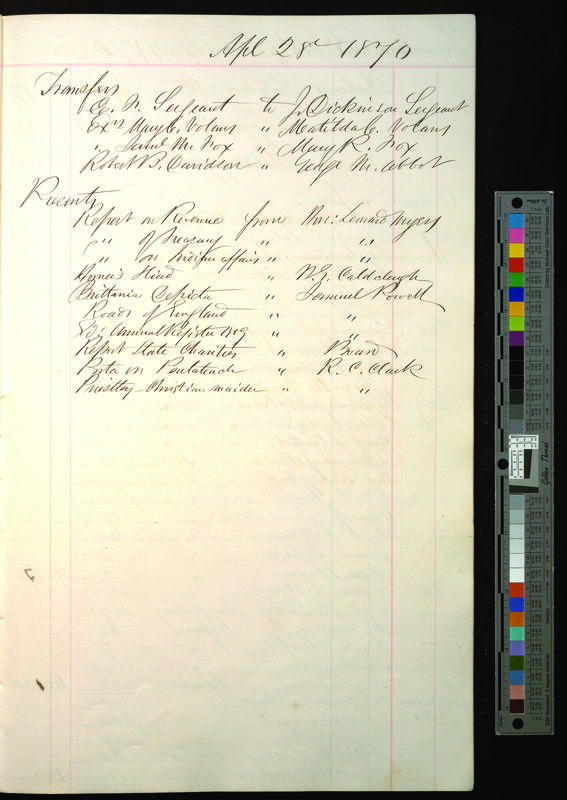 Apl 28th 1870
Transfers
E. N. Sergeant to J. Dickinson Sergeant
Exrs Mary C. Votans " Matilda C. Votans
" Saml M. Fox " Mary R. Fox
Robert B. Davidson " George M. Abbot
Presents
Report on Revenue from Hon: Leonard Myers
" of Treasury " "
" on Indian affairs " "
Homer's Iliad " W. G. Caldcleugh
Brittania Depicta " Samuel Powell
Roads of England " "
Annual Register " "
Report State Charities " Board
on Pentateuch " R. C. Clark
Priestley Christian " "